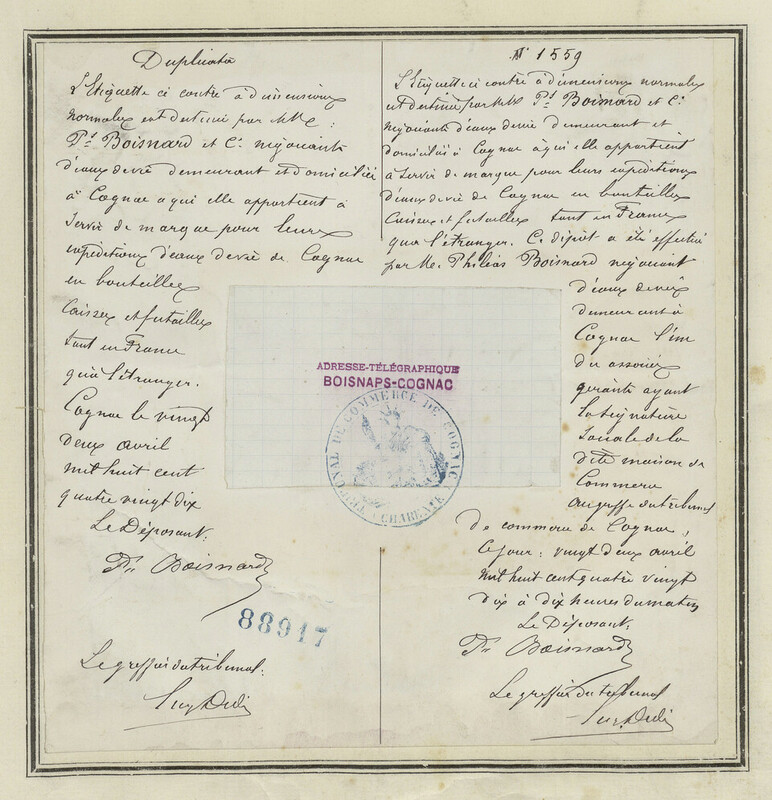 Duplicata
L'Etiquette ci contre à dimensions
normales est destinée par MM.
Ph. Boisnard et Cie négociants
d'eaux de vie demeurant et domiciliés
à Cognac à qui elle appartient à
servir de marque pour leurs
expéditions d'eaux de vie de Cognac
en bouteilles
caisses et futailles
tant en France
qu'à l'étranger.
Cognac le vingt
deux avril
mil huit cent
quatre vingt dix
Le Déposant:
Ph Boisnard
88917
Le greffier du tribunal:
N° 1559
L'Etiquette ci contre à dimensions normales
est destinée par MM. Ph. Boisnard et Cie
négociants d'eaux de vie demeurant et
domiciliés à Cognac à qui elle appartient
à servir de marque pour leurs expéditions
d'eaux de vie de Cognac en bouteilles
caisses et futailles tant en France
qu'à l'étranger. Ce dépôt a été effectué
par Mr. Philéas Boisnard négociant
d'eaux de vie
demeurant à
Cognac l'un
des associés
gérants ayant
la signature
sociale de la
dite maison de
Commerce
au greffe du tribunal
de commerce de Cognac,
ce jour: vingt deux avril
mil huit cent quatre vingt
dix à dix heures du matin
Le Déposant:
Ph Boisnard
Le greffier du tribunal
ADRESSE-TÉLÉGRAPHIQUE
BOISNAPS-COGNAC
TRIBUNAL DE COMMERCE DE COGNAC
CHARENTE